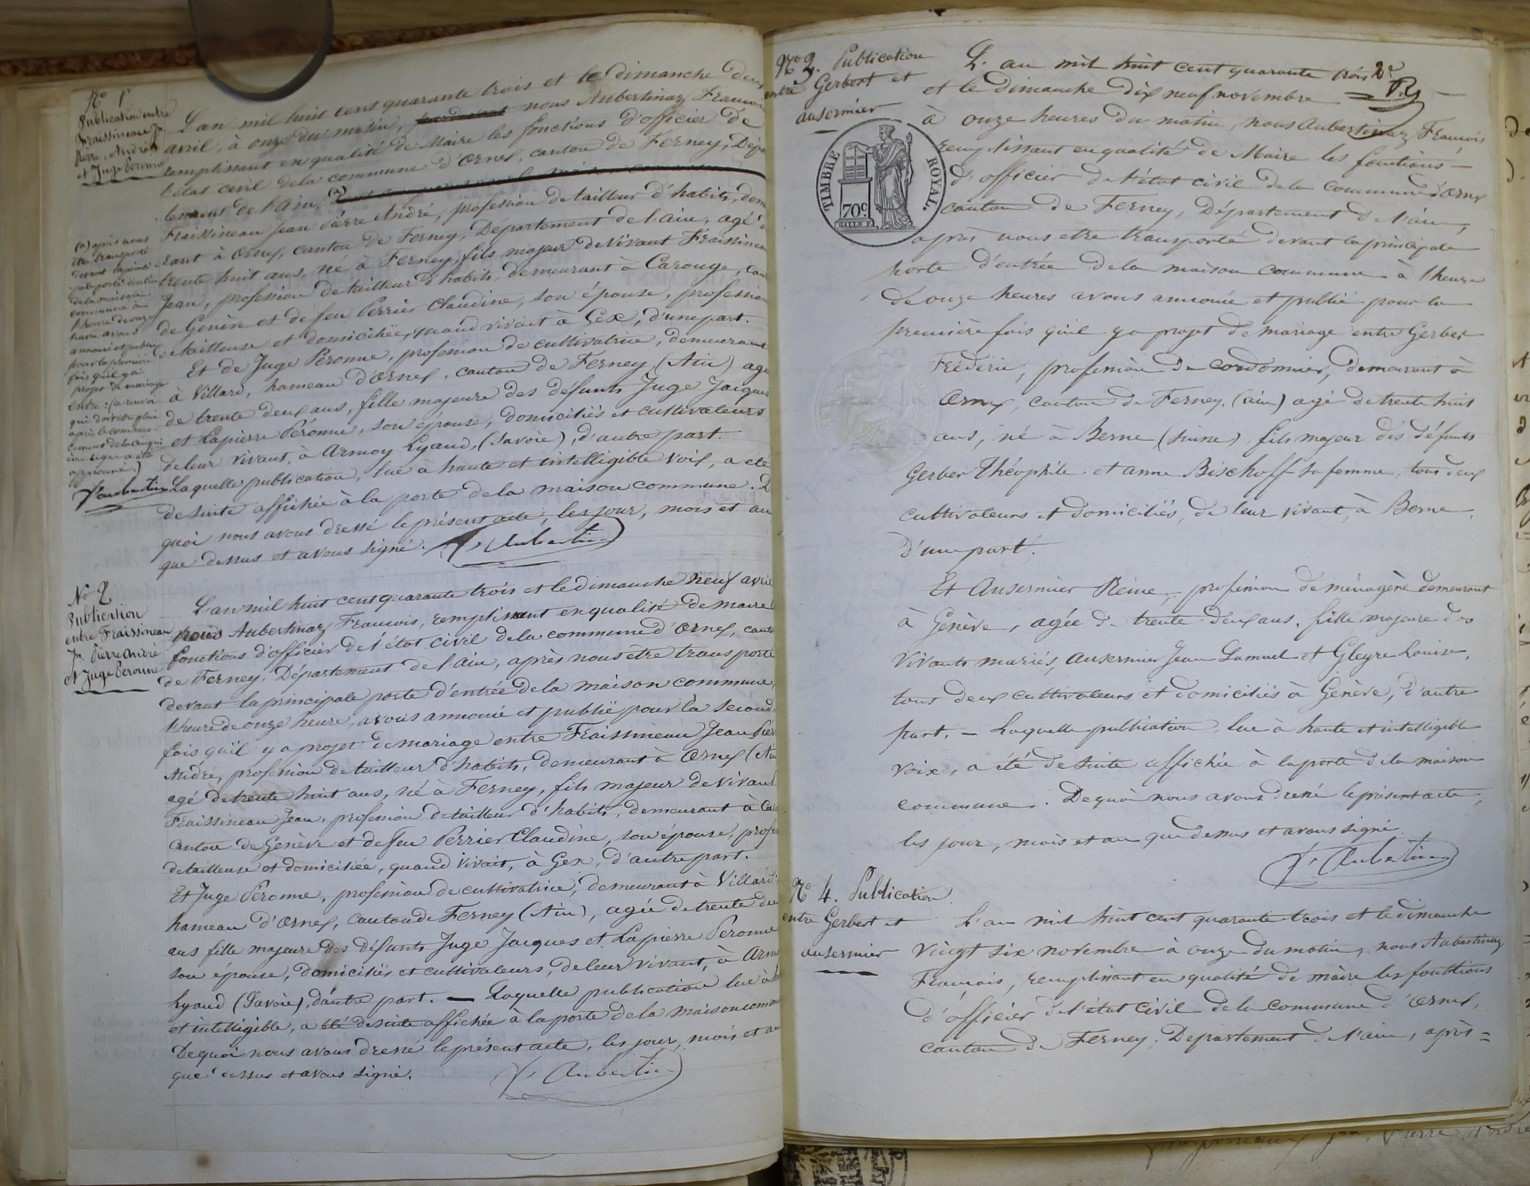 N° 1
Publication entre
Fraissineau Jn
Pierre André
et Juge Péronne
L'an mil huit cens quarante trois et le dimanche deux
avril, à onze du matin, nous Aubertinaz François
remplissant en qualité de Maire les fonctions d'officier de
l'état civil de la commune d'Ornex, canton de Ferney, Dépar
tement de l'ain,
Fraissineau Jean Pierre André, profession de tailleur d'habits, demeu
rant à Ornex, canton de Ferney, Département de l'ain, agé de
trente huit ans, né à Ferney, fils majeur de Vivant Fraissineau
Jean, profession de tailleur d'habits demeurant à Carouge, can
de Genève et de feu Perrier Claudine, son épouse, profession
de tailleuse et domiciliée, quand vivait à Gex, d'une part.
Et de Juge Péronne, profession de cultivatrice, demeurant
à Villard, hameau d'Ornex, canton de Ferney (Ain) agée
de trente deux ans, fille majeure des défunts Juge Jacques
et Lapierre Péronne, son épouse, domiciliés et cultivateurs
de leur vivant, à Armoy Lyaud, (Savoie), d'autre part.
Laquelle publication, lue à haute et intelligible voix, a été
de suite affichée à la porte de la maison commune. De
quoi nous avons dressé le présent acte, les jour, mois et an
que dessus et avons signé. Fs Aubertin
(a) après nous
être transporté
devant la princi
pale porte d'entrée
de la maison
commune à
l'heure de onze
heure avons
annoncé et publié
pour la première
fois qu'il y a
projet de mariage
entre
N° 2
Publication
entre Fraissineau
Jn Pierre André
et Juge Péronne
L'an mil huit cent quarante trois et le dimanche neuf avril
nous Aubertinaz Francois, remplissant en qualité de maire les
fonctions d'officier de l'état civil de la commune d'Ornex, canton
de Ferney, Département de l'ain, après nous être transporté
devant la principale porte d'entrée de la maison commune,
l'heure de onze heure, avons annoncé et publié pour la seconde
fois qu'il y a projet de mariage entre Fraissineau Jean Pierre
André, profession de tailleur d'habits, demeurant à Ornex (Ain
agé de trente huit ans, né à Ferney, fils majeur de Vivant
Fraissineau Jean, profession de tailleur d'habits, demeurant à Ca
canton de Genève et de feu Perrier Claudine, son épouse, profes
de tailleuse et domiciliée, quand vivait, à Gex, d'autre part.
Et Juge Péronne, profession de cultivatrice, demeurant à Villard
hameau d'Ornex, canton de Ferney (Ain), agée de trente deux
ans fille majeure des défunts Juge Jacques et Lapierre Péronne
son épouse, domiciliés et cultivateurs, de leur vivant, à Armoy
Lyaud (Savoie), d'autre part. — Laquelle publication lue à h
et intelligible, a été de suite affichée à la porte de la maison comm
De quoi nous avons dressé le présent acte, les jour, mois et an
que dessus et avons signé.
Fs Aubertin
N° 3. Publication
entre Gerbert et
ansermier
TIMBRE ROYAL.
70c
L'an mil huit cent quarante trois
et le dimanche dix neuf novembre
à onze heures du matin, nous Aubertinaz François
remplissant en qualité de Maire les fonctions
d'officier de l'état civil de la commune d'Ornex
canton de Ferney, Département de l'ain,
après nous être transporté devant la principale
porte d'entrée de la maison commune à l'heure
de onze heures avons annoncé et publié pour la
première fois qu'il y a projet de mariage entre Gerber
Fréderic, profession de cordonnier, demeurant à
Ornex, canton de Ferney, (ain) agé de trente huit
ans, né à Berne (Suisse), fils majeur des défunts
Gerber Théophile et anne Bischoff sa femme, tous deux
cultivateurs et domiciliés, de leur vivant, à Berne.
D'une part.
Et Ansermier Reine, profession de ménagère demeurant
à Genève, agée de trente deux ans, fille majeure des
Vivants mariés, ansermier Jean Samuel et Gleyre Louise,
tous deux cultivateurs et domiciliés à Genève, d'autre
part. — Laquelle publication lue à haute et intelligible
voix, a été de suite affichée à la porte de la maison
commune. De quoi nous avons dressé le présent acte,
les jour, mois et an que dessus et avons signé
Fs Aubertin
N° 4. Publication
entre Gerbert et
ansermier
L'an mil huit cent quarante trois et le dimanche
vingt six novembre à onze du matin, nous Aubertinaz
Francois, remplissant en qualité de maire les fonctions
d'officier de l'état civil de la commune d'ornex,
canton de Ferney, Département de l'ain, après=